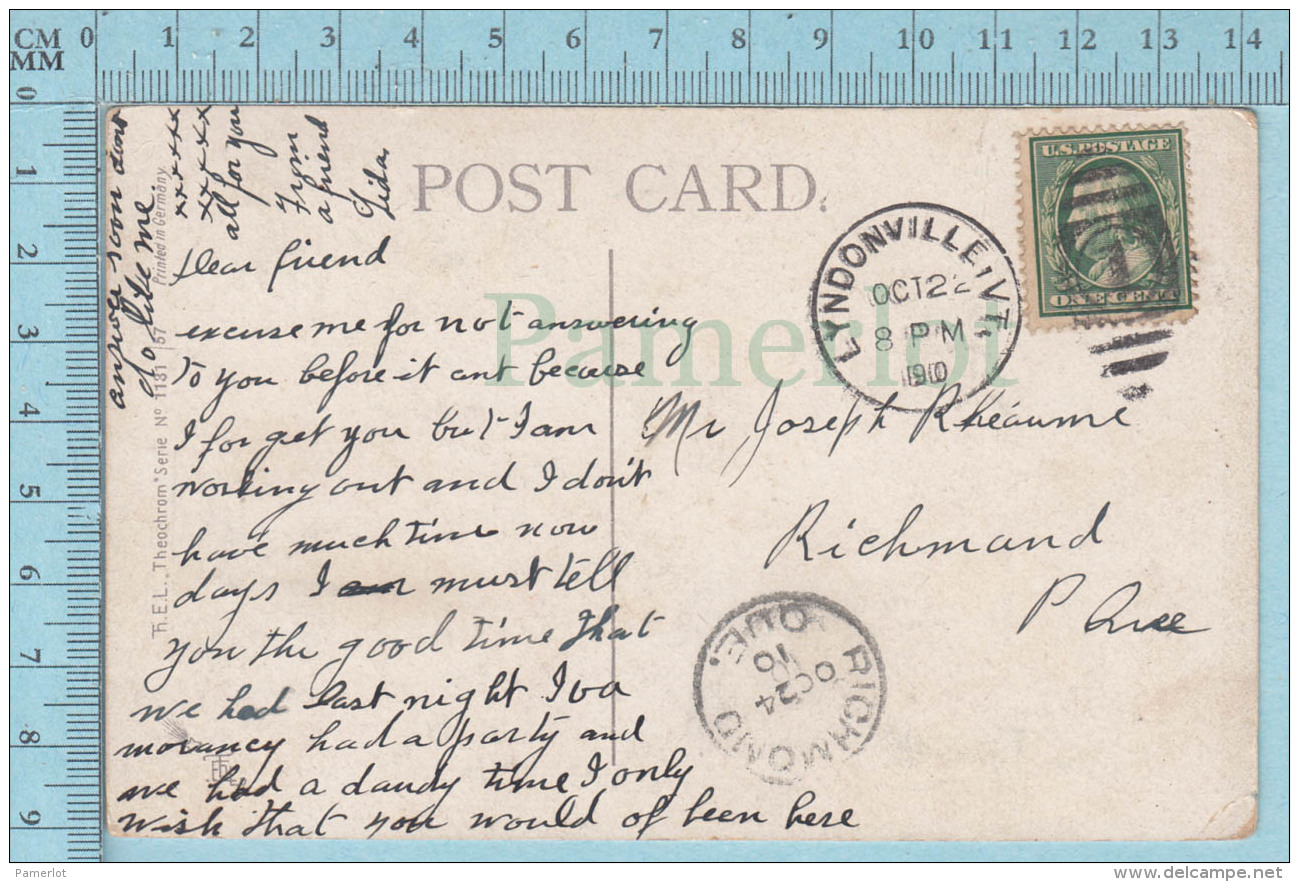 CM 0 1 2 3 4 5 6 7 8 9 10 11 12 13 14
MM
0 1 2 3 4 5 6 7 8 9
POST CARD.
U.S. POSTAGE
ONE CENT
LYNDONVILLE, VT.
OCT 22
8 PM
1910
Dear friend
excuse me for not answering
To you before it ant because
I for get you but I am
working out and I don't
have much time now
days I am must tell
you the good time that
we had last night Iva
morancy had a party and
we had a dandy time I only
wish that you would of been here
answer soon
do like me
xxxxx
xxxxx
all for you
From
a friend
Lida.
Mr Joseph Rhéaume
Richmand
P Que
RICHMOND QUE.
OC 24
10
H.E.L., "Theochrom" Serie Nº 1131 | 57 Printed in Germany
Pamerlot
Pamerlot
www.delcampe.net